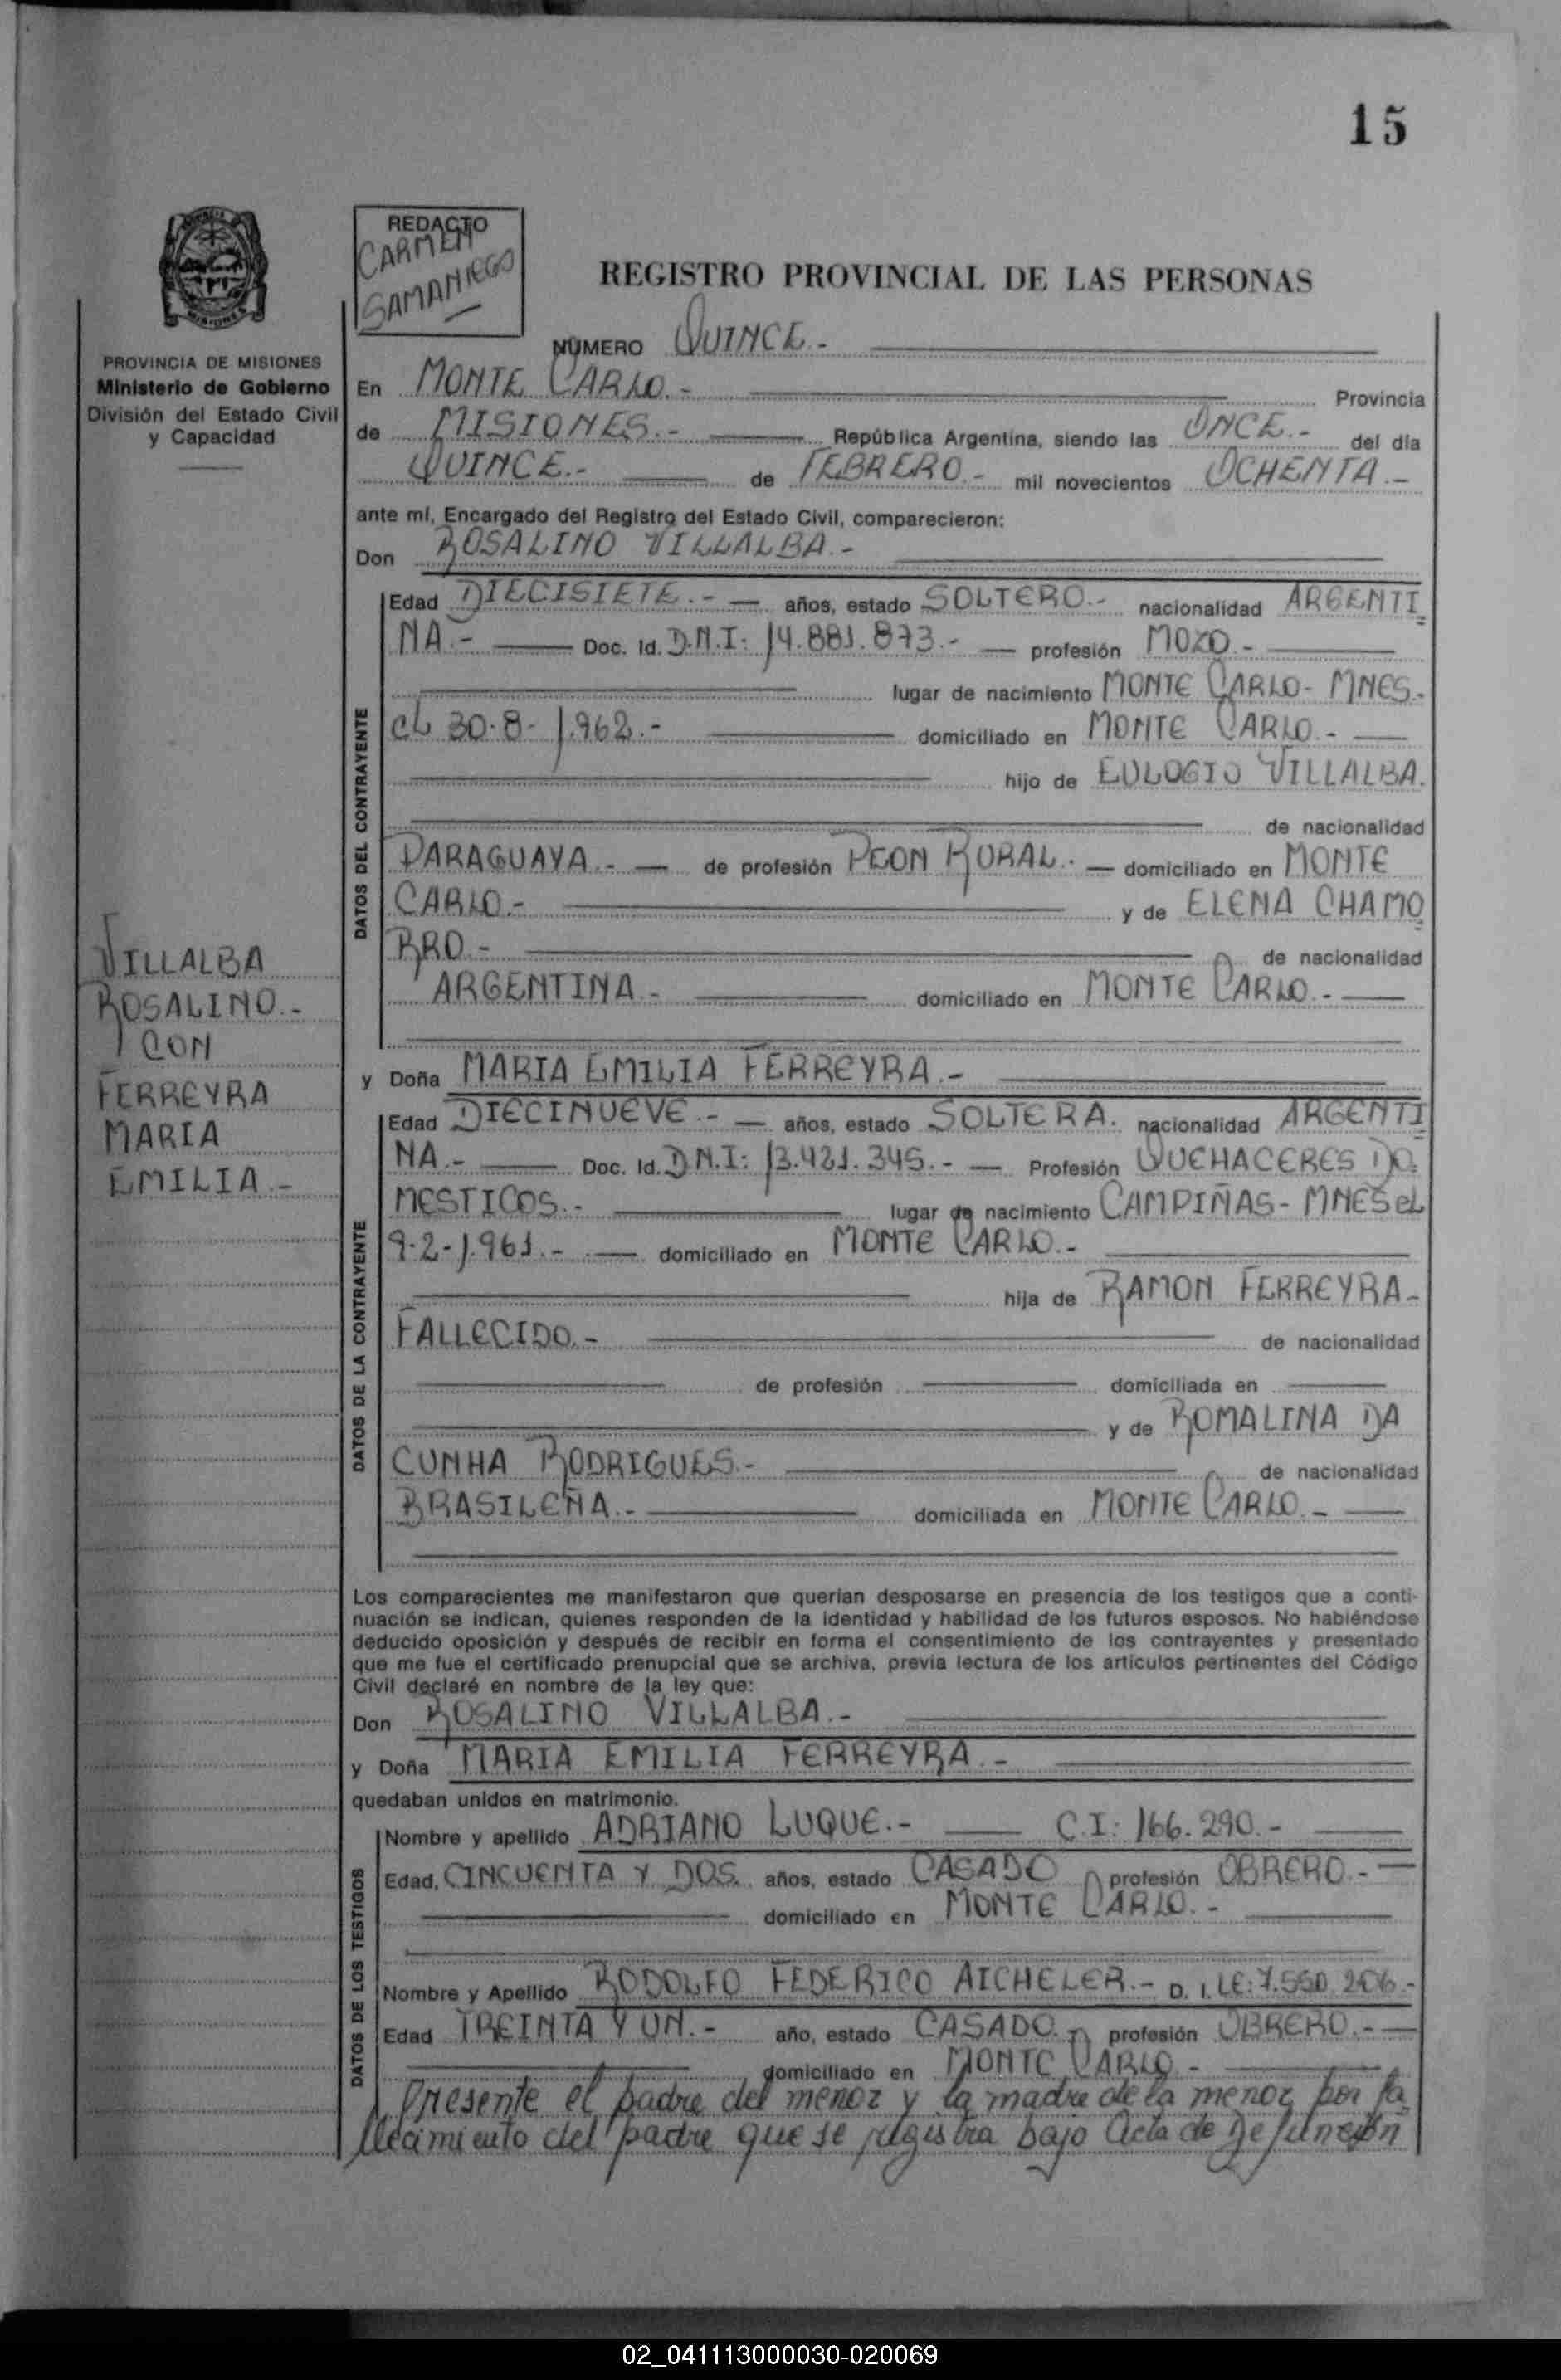 15
REDACTO
CARMEN
SAMANIEGO
REGISTRO PROVINCIAL DE LAS PERSONAS
MISIONES
PROVINCIA DE MISIONES
Ministerio de Gobierno
División del Estado Civil
y Capacidad
VILLALBA
ROSALINO.-
CON
FERREYRA
MARIA
EMILIA.-
NÚMERO QUINCE.-
En MONTE CARLO.- Provincia
de MISIONES.- República Argentina, siendo las ONCE.- del día
QUINCE.- de FEBRERO.- mil novecientos OCHENTA.-
ante mí, Encargado del Registro del Estado Civil, comparecieron:
Don ROSALINO VILLALBA.-
DATOS DEL CONTRAYENTE
Edad DIECISIETE.- años, estado SOLTERO.- nacionalidad ARGENTI
NA.- Doc. Id. D.N.I: 14.881.873.- profesión MOZO.-
lugar de nacimiento MONTE CARLO- MNES.-
EL 30-8-1.962.- domiciliado en MONTE CARLO.-
hijo de EULOGIO VILLALBA.
de nacionalidad
PARAGUAYA.- de profesión PEON RURAL.- domiciliado en MONTE
CARLO.- y de ELENA CHAMO
RRO.- de nacionalidad
ARGENTINA.- domiciliado en MONTE CARLO.-
y Doña MARIA EMILIA FERREYRA.-
DATOS DE LA CONTRAYENTE
Edad DIECINUEVE.- años, estado SOLTERA. nacionalidad ARGENTI
NA.- Doc. Id. D.N.I: 13.421.345.- Profesión QUEHACERES DO
MESTICOS.- lugar de nacimiento CAMPIÑAS- MNES EL
9-2-1.961.- domiciliado en MONTE CARLO.-
hija de RAMON FERREYRA-
FALLECIDO.- de nacionalidad
de profesión domiciliada en
y de ROMALINA DA
CUNHA RODRIGUES.- de nacionalidad
BRASILEÑA.- domiciliada en MONTE CARLO.-
Los comparecientes me manifestaron que querían desposarse en presencia de los testigos que a conti-
nuación se indican, quienes responden de la identidad y habilidad de los futuros esposos. No habiéndose
deducido oposición y después de recibir en forma el consentimiento de los contrayentes y presentado
que me fue el certificado prenupcial que se archiva, previa lectura de los artículos pertinentes del Código
Civil declaré en nombre de la ley que:
Don ROSALINO VILLALBA.-
y Doña MARIA EMILIA FERREYRA.-
quedaban unidos en matrimonio.
DATOS DE LOS TESTIGOS
Nombre y apellido ADRIANO LUQUE.- C.I: 166.290.-
Edad, CINCUENTA Y DOS. años, estado CASADO profesión OBRERO.-
domiciliado en MONTE CARLO.-
Nombre y Apellido RODOLFO FEDERICO AICHELER.- D. I. LE: 7.550.206.-
Edad TREINTA Y UN.- año, estado CASADO.- profesión OBRERO.-
domiciliado en MONTE CARLO.-
Presente el padre del menor y la madre de la menor por fa
llecimiento del padre que se registra bajo acta de Defunción
02_041113000030-020069